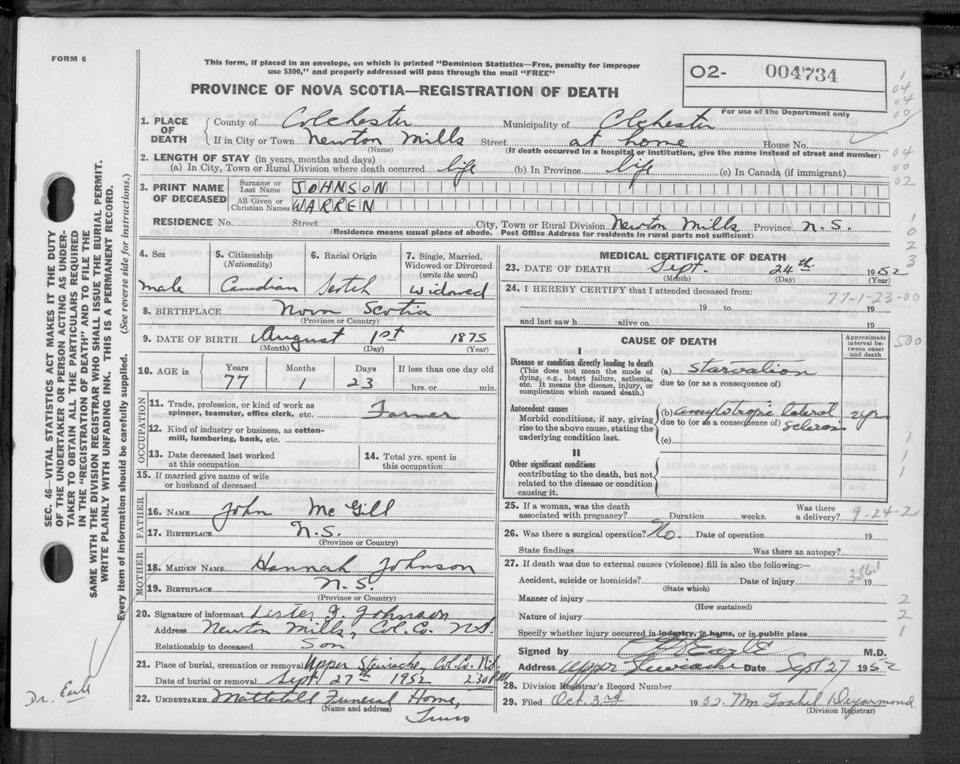 FORM 6
This form, if placed in an envelope, on which is printed "Dominion Statistics—Free, penalty for improper
use $300," and properly addressed will pass through the mail "FREE"
PROVINCE OF NOVA SCOTIA—REGISTRATION OF DEATH
O2- 004734
For use of the Department only
1. PLACE OF DEATH
County of Colchester Municipality of Colchester
If in City or Town Newton Mills Street at home House No.
(Name) (If death occurred in a hospital or institution, give the name instead of street and number)
2. LENGTH OF STAY (in years, months and days)
(a) In City, Town or Rural Division where death occurred. life (b) In Province life (c) In Canada (if immigrant)
3. PRINT NAME OF DECEASED
Surname or Last Name JOHNSON
All Given or Christian Names WARREN
RESIDENCE No. Street City, Town or Rural Division Newton Mills Province N.S.
(Residence means usual place of abode. Post Office Address for residents in rural parts not sufficient)
4. Sex 5. Citizenship (Nationality) 6. Racial Origin 7. Single, Married, Widowed or Divorced (write the word)
male Canadian Scotch Widowed
8. BIRTHPLACE Nova Scotia
(Province or Country)
9. DATE OF BIRTH August 1st 1875
(Month) (Day) (Year)
10. AGE in Years Months Days If less than one day old
77 1 23 hrs. or min.
OCCUPATION
11. Trade, profession, or kind of work as spinner, teamster, office clerk, etc. Farmer
12. Kind of industry or business, as cotton-mill, lumbering, bank, etc.
13. Date deceased last worked at this occupation
14. Total yrs. spent in this occupation
15. If married give name of wife or husband of deceased
FATHER
16. NAME John McGill
17. BIRTHPLACE N.S.
(Province or Country)
MOTHER
18. MAIDEN NAME Hannah Johnson
19. BIRTHPLACE N.S.
(Province or Country)
20. Signature of informant Lester F. Johnson
Address Newton Mills, Col. Co. N.S.
Relationship to deceased Son
21. Place of burial, cremation or removal Upper Stewiacke, Col. Co. N.S.
Date of burial or removal Sept 27th 1952 2:30 PM
22. UNDERTAKER Mattatall Funeral Home,
(Name and address) Truro
MEDICAL CERTIFICATE OF DEATH
23. DATE OF DEATH Sept. 24th 1952
(Month) (Day) (Year)
24. I HEREBY CERTIFY that I attended deceased from:
77-1-23-00
19 to 19
and last saw h alive on 19
CAUSE OF DEATH
Approximate interval between onset and death
500
I
Disease or condition directly leading to death
(This does not mean the mode of dying, e.g., heart failure, asthenia, etc. It means the disease, injury, or complication which caused death.)
(a) starvation
due to (or as a consequence of)
Antecedent causes
Morbid conditions, if any, giving rise to the above cause, stating the underlying condition last.
(b) amyotropic lateral 2 yr
due to (or as a consequence of) scleros
(c)
II
Other significant conditions
contributing to the death, but not related to the disease or condition causing it.
25. If a woman, was the death associated with pregnancy? Duration weeks. Was there a delivery?
9-24-2
26. Was there a surgical operation? No. Date of operation 19
State findings Was there an autopsy?
27. If death was due to external causes (violence) fill in also the following:—
3561
Accident, suicide or homicide? Date of injury 19
(State which)
Manner of injury
(How sustained)
Nature of injury
Specify whether injury occurred in industry, in home, or in public place
Signed by Earle M.D.
Address Upper Stewiacke Date Sept 27 1952
28. Division Registrar's Record Number
29. Filed Oct. 3rd 1952. Mrs Isabel Dejarmond
(Division Registrar)
SEC. 46—VITAL STATISTICS ACT MAKES IT THE DUTY
OF THE UNDERTAKER OR PERSON ACTING AS UNDER-
TAKER TO OBTAIN ALL THE PARTICULARS REQUIRED
IN THE "REGISTRATION OF DEATH" AND TO FILE THE
SAME WITH THE DIVISION REGISTRAR WHO SHALL ISSUE THE BURIAL PERMIT.
WRITE PLAINLY WITH UNFADING INK. THIS IS A PERMANENT RECORD.
Every item of information should be carefully supplied. (See reverse side for instructions.)
Dr. Earle
1
04
04
00
04
00
02
1
0
2
3
1
1
1
2
2
1